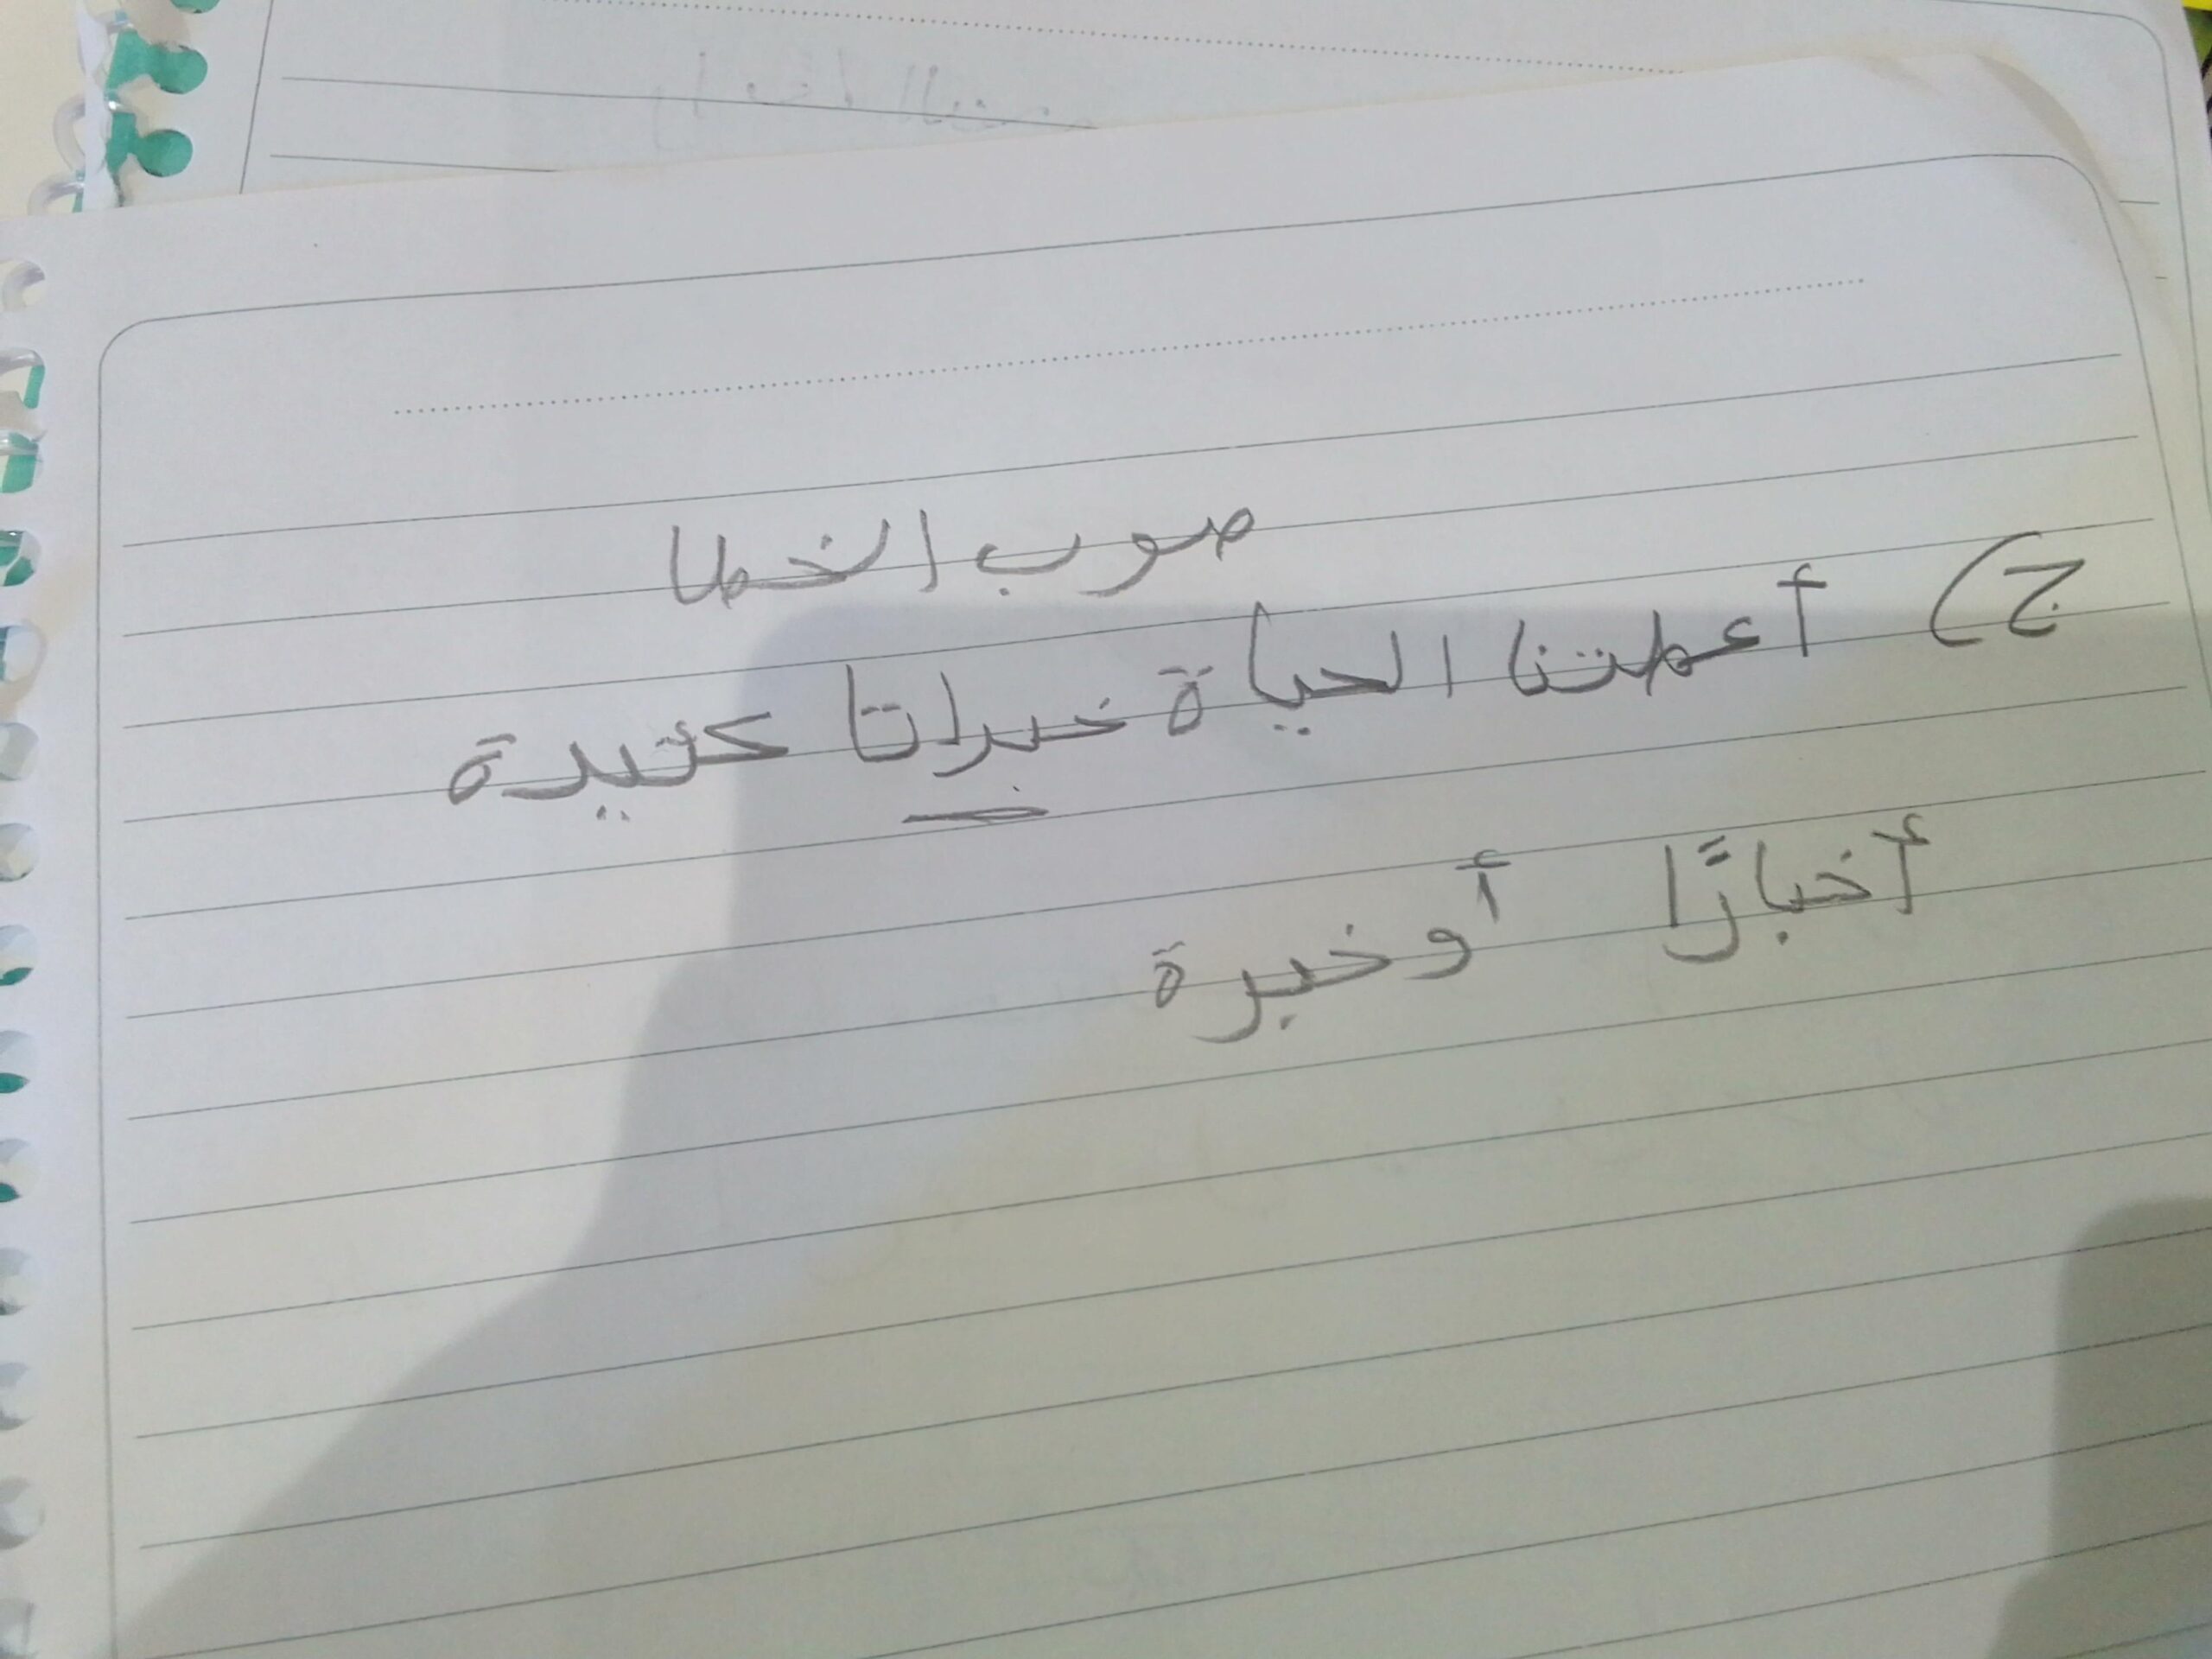 صوب الخطا
ج) أعطتنا الحياة خبراتا كثيرة
أخبارًا أو خبرة